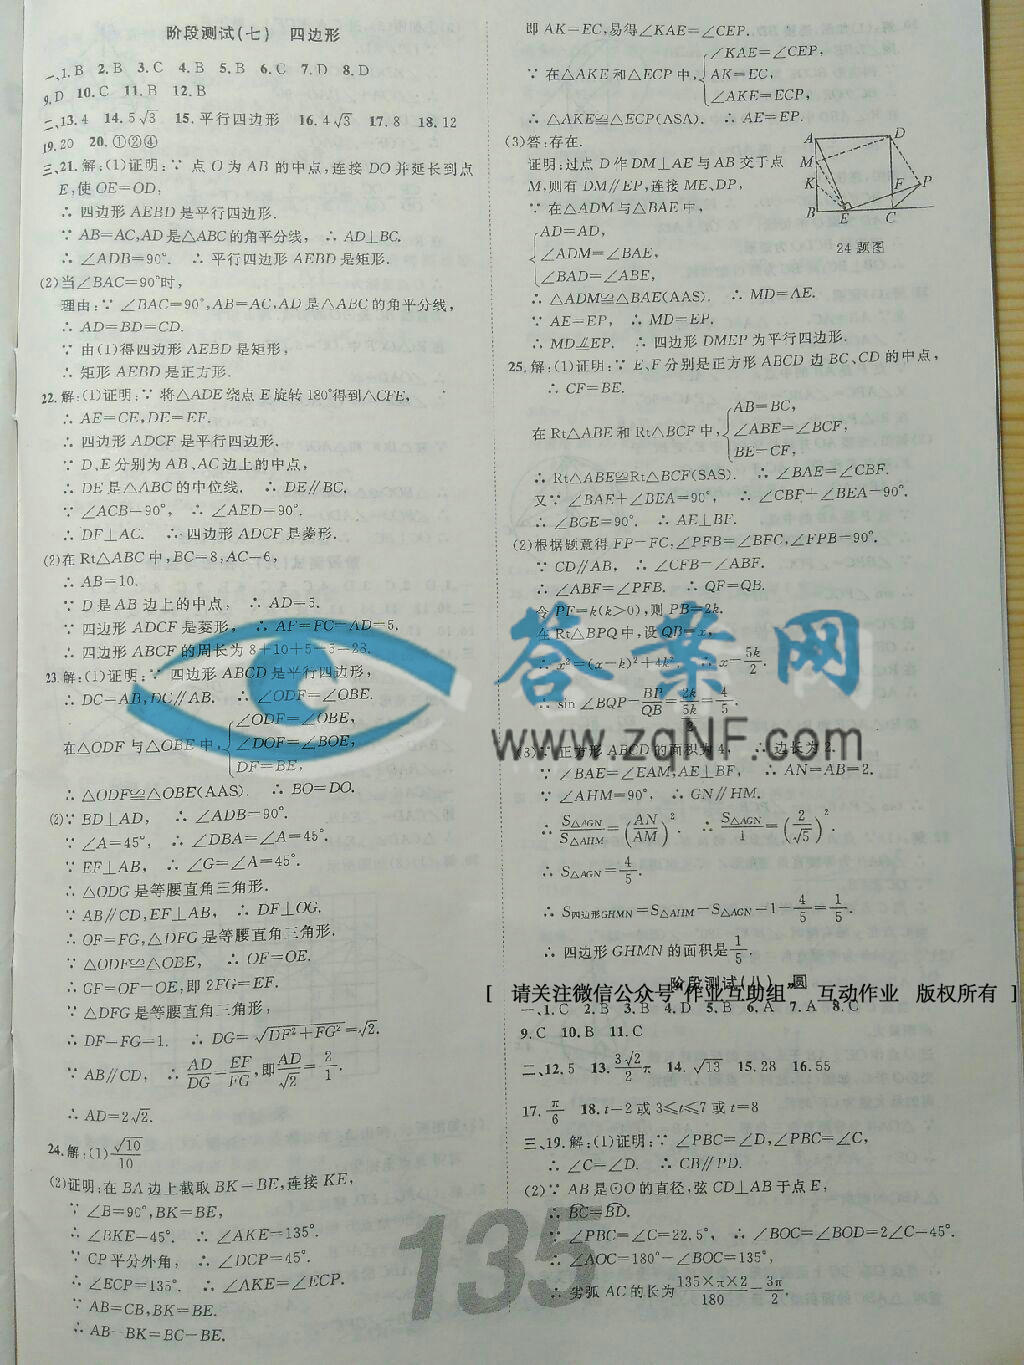 阶段测试(七) 四边形
一、1.B 2.B 3.C 4.B 5.B 6.C 7.D 8.D
9.D 10.C 11.B 12.B
二、13.4 14.5√3 15.平行四边形 16.4√3 17.8 18.12
19.20 20.①②④
三、21.解:(1)证明:∵ 点O为AB的中点,连接DO并延长到点
E,使OE=OD,
∴ 四边形AEBD是平行四边形.
∵ AB=AC,AD是△ABC的角平分线, ∴ AD⊥BC.
∴ ∠ADB=90°. ∴ 平行四边形AEBD是矩形.
(2)当∠BAC=90°时,
理由:∵ ∠BAC=90°,AB=AC,AD是△ABC的角平分线,
∴ AD=BD=CD.
∵ 由(1)得四边形AEBD是矩形,
∴ 矩形AEBD是正方形.
22.解:(1)证明:∵ 将△ADE绕点E旋转180°得到△CFE,
∴ AE=CE,DE=EF.
∴ 四边形ADCF是平行四边形.
∵ D、E分别为AB、AC边上的中点,
∴ DE是△ABC的中位线. ∴ DE∥BC,
∵ ∠ACB=90°, ∴ ∠AED=90°.
∴ DF⊥AC. ∴ 四边形ADCF是菱形.
(2)在Rt△ABC中,BC=8,AC=6,
∴ AB=10.
∵ D是AB边上的中点, ∴ AD=5.
∵ 四边形ADCF是菱形, ∴ AF=FC=AD=5,
∴ 四边形ABCF的周长为8+10+5+5=28.
23.解:(1)证明:∵ 四边形ABCD是平行四边形,
∴ DC=AB,DC∥AB. ∴ ∠ODF=∠OBE.
在△ODF与△OBE中,{∠ODF=∠OBE,
∠DOF=∠BOE,
DF=BE,
∴ △ODF≌△OBE(AAS). ∴ BO=DO.
(2)∵ BD⊥AD, ∴ ∠ADB=90°.
∵ ∠A=45°, ∴ ∠DBA=∠A=45°.
∵ EF⊥AB, ∴ ∠G=∠A=45°.
∴ △ODG是等腰直角三角形.
∵ AB∥CD,EF⊥AB, ∴ DF⊥OG.
∴ OF=FG,△DFG是等腰直角三角形.
∵ △ODF≌△OBE, ∴ OF=OE.
∴ GF=OF=OE,即2FG=EF.
∵ △DFG是等腰直角三角形,
∴ DF=FG=1. ∴ DG=√(DF²+FG²)=√2.
∵ AB∥CD, ∴ AD/DG=EF/FG,即AD/√2=2/1.
∴ AD=2√2.
24.解:(1)√10/10
(2)证明:在BA边上截取BK=BE,连接KE,
∵ ∠B=90°,BK=BE,
∴ ∠BKE=45°. ∴ ∠AKE=135°.
∵ CP平分外角, ∴ ∠DCP=45°.
∴ ∠ECP=135°. ∴ ∠AKE=∠ECP.
∵ AB=CB,BK=BE.
∴ AB-BK=BC-BE.
即AK=EC,易得∠KAE=∠CEP.
∵ 在△AKE和△ECP中,{∠KAE=∠CEP,
AK=EC,
∠AKE=ECP,
∴ △AKE≌△ECP(ASA). ∴ AE=EP.
(3)答:存在.
证明:过点D作DM⊥AE与AB交于点
M,则有DM∥EP,连接ME、DP,
∵ 在△ADM与△BAE中,
{AD=AD,
∠ADM=∠BAE,
∠BAD=∠ABE,
∴ △ADM≌△BAE(AAS). ∴ MD=AE.
∵ AE=EP, ∴ MD=EP.
∴ MD⫽EP. ∴ 四边形DMEP为平行四边形.
A D
M
K F P
B E C
24题图
25.解:(1)证明:∵ E、F分别是正方形ABCD边BC、CD的中点,
∴ CF=BE.
在Rt△ABE和Rt△BCF中,{AB=BC,
∠ABE=∠BCF,
BE=CF,
∴ Rt△ABE≌Rt△BCF(SAS). ∴ ∠BAE=∠CBF.
又∵ ∠BAE+∠BEA=90°, ∴ ∠CBF+∠BEA=90°.
∴ ∠BGE=90°. ∴ AE⊥BF.
(2)根据题意得FP=FC,∠PFB=∠BFC,∠FPB=90°.
∵ CD∥AB, ∴ ∠CFB=∠ABF.
∴ ∠ABF=∠PFB. ∴ QF=QB.
令PF=k(k>0),则PB=2k.
在Rt△BPQ中,设QB=x,
∴ x²=(x-k)²+4k². ∴ x=5k/2.
∴ sin∠BQP=BP/QB=2k/(5k/2)=4/5.
(3)∵ 正方形ABCD的面积为4, ∴ 边长为2.
∵ ∠BAE=∠EAM,AE⊥BF, ∴ AN=AB=2.
∵ ∠AHM=90°, ∴ GN∥HM.
∴ S△AGN/S△AHM=(AN/AM)². ∴ S△AGN/1=(2/√5)².
∴ S△AGN=4/5.
∴ S四边形GHMN=S△AHM-S△AGN=1-4/5=1/5.
∴ 四边形GHMN的面积是1/5.
阶段测试(八) 圆
[ 请关注微信公众号"作业互助组" 互动作业 版权所有 ]
一、1.C 2.B 3.B 4.D 5.B 6.A 7.A 8.C
9.C 10.B 11.C
二、12.5 13.3√2/2 π 14.√13 15.28 16.55
17.π/6 18.t=2或3≤t≤7或t=8
三、19.解:(1)证明:∵ ∠PBC=∠D,∠PBC=∠C,
∴ ∠C=∠D. ∴ CB∥PD.
(2)∵ AB是⊙O的直径,弦CD⊥AB于点E,
∴ BC=BD.
∵ ∠PBC=∠C=22.5°, ∴ ∠BOC=∠BOD=2∠C=45°.
∴ ∠AOC=180°-∠BOC=135°,
∴ 劣弧AC的长为135×π×2/180=3π/2.
135
答案网
www.zqNF.com